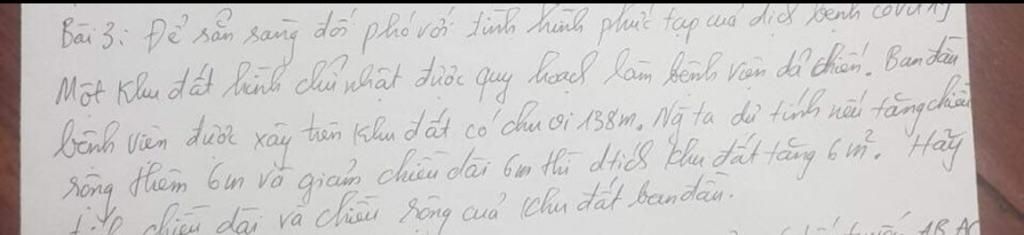 Bài 3: Để sẵn sàng đối phó với tình hình phức tạp của dịch bệnh covid 19
Một khu đất hình chữ nhật được quy hoạch làm bệnh viện dã chiến. Ban đầu
bệnh viện được xây trên khu đất có chu vi 138m. Ng ta dự tính nếu tăng chiều
rộng thêm 6m và giảm chiều dài 6m thì dtích khu đất tăng 6m². Hãy
chiều dài và chiều rộng của khu đất ban đầu.
AB, AC